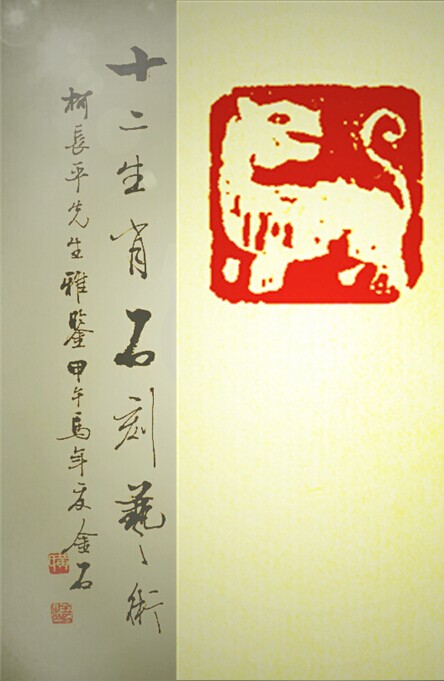 十二生肖石刻藝術
柯長平先生雅鑒甲午馬年夏金石